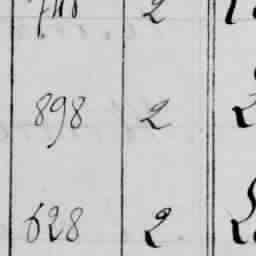 898 2
628 2